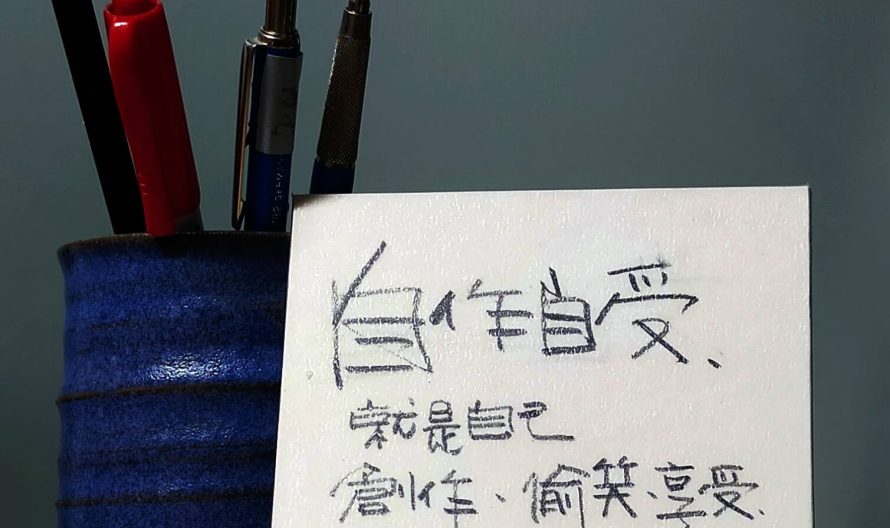 自作自受、
就是自己
創作、偷笑、享受.